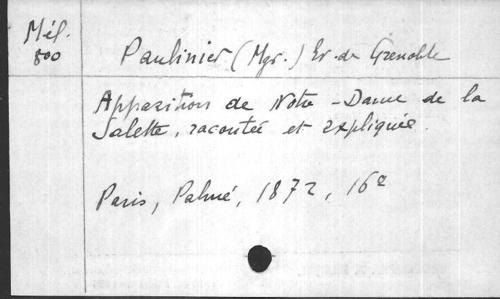 Mél.
800
Paulinier (Mgr.) Ev. de Grenoble
Apparition de Notre-Dame de la
Salette, racontée et expliquée.
Paris, Palmé, 1872, 16º